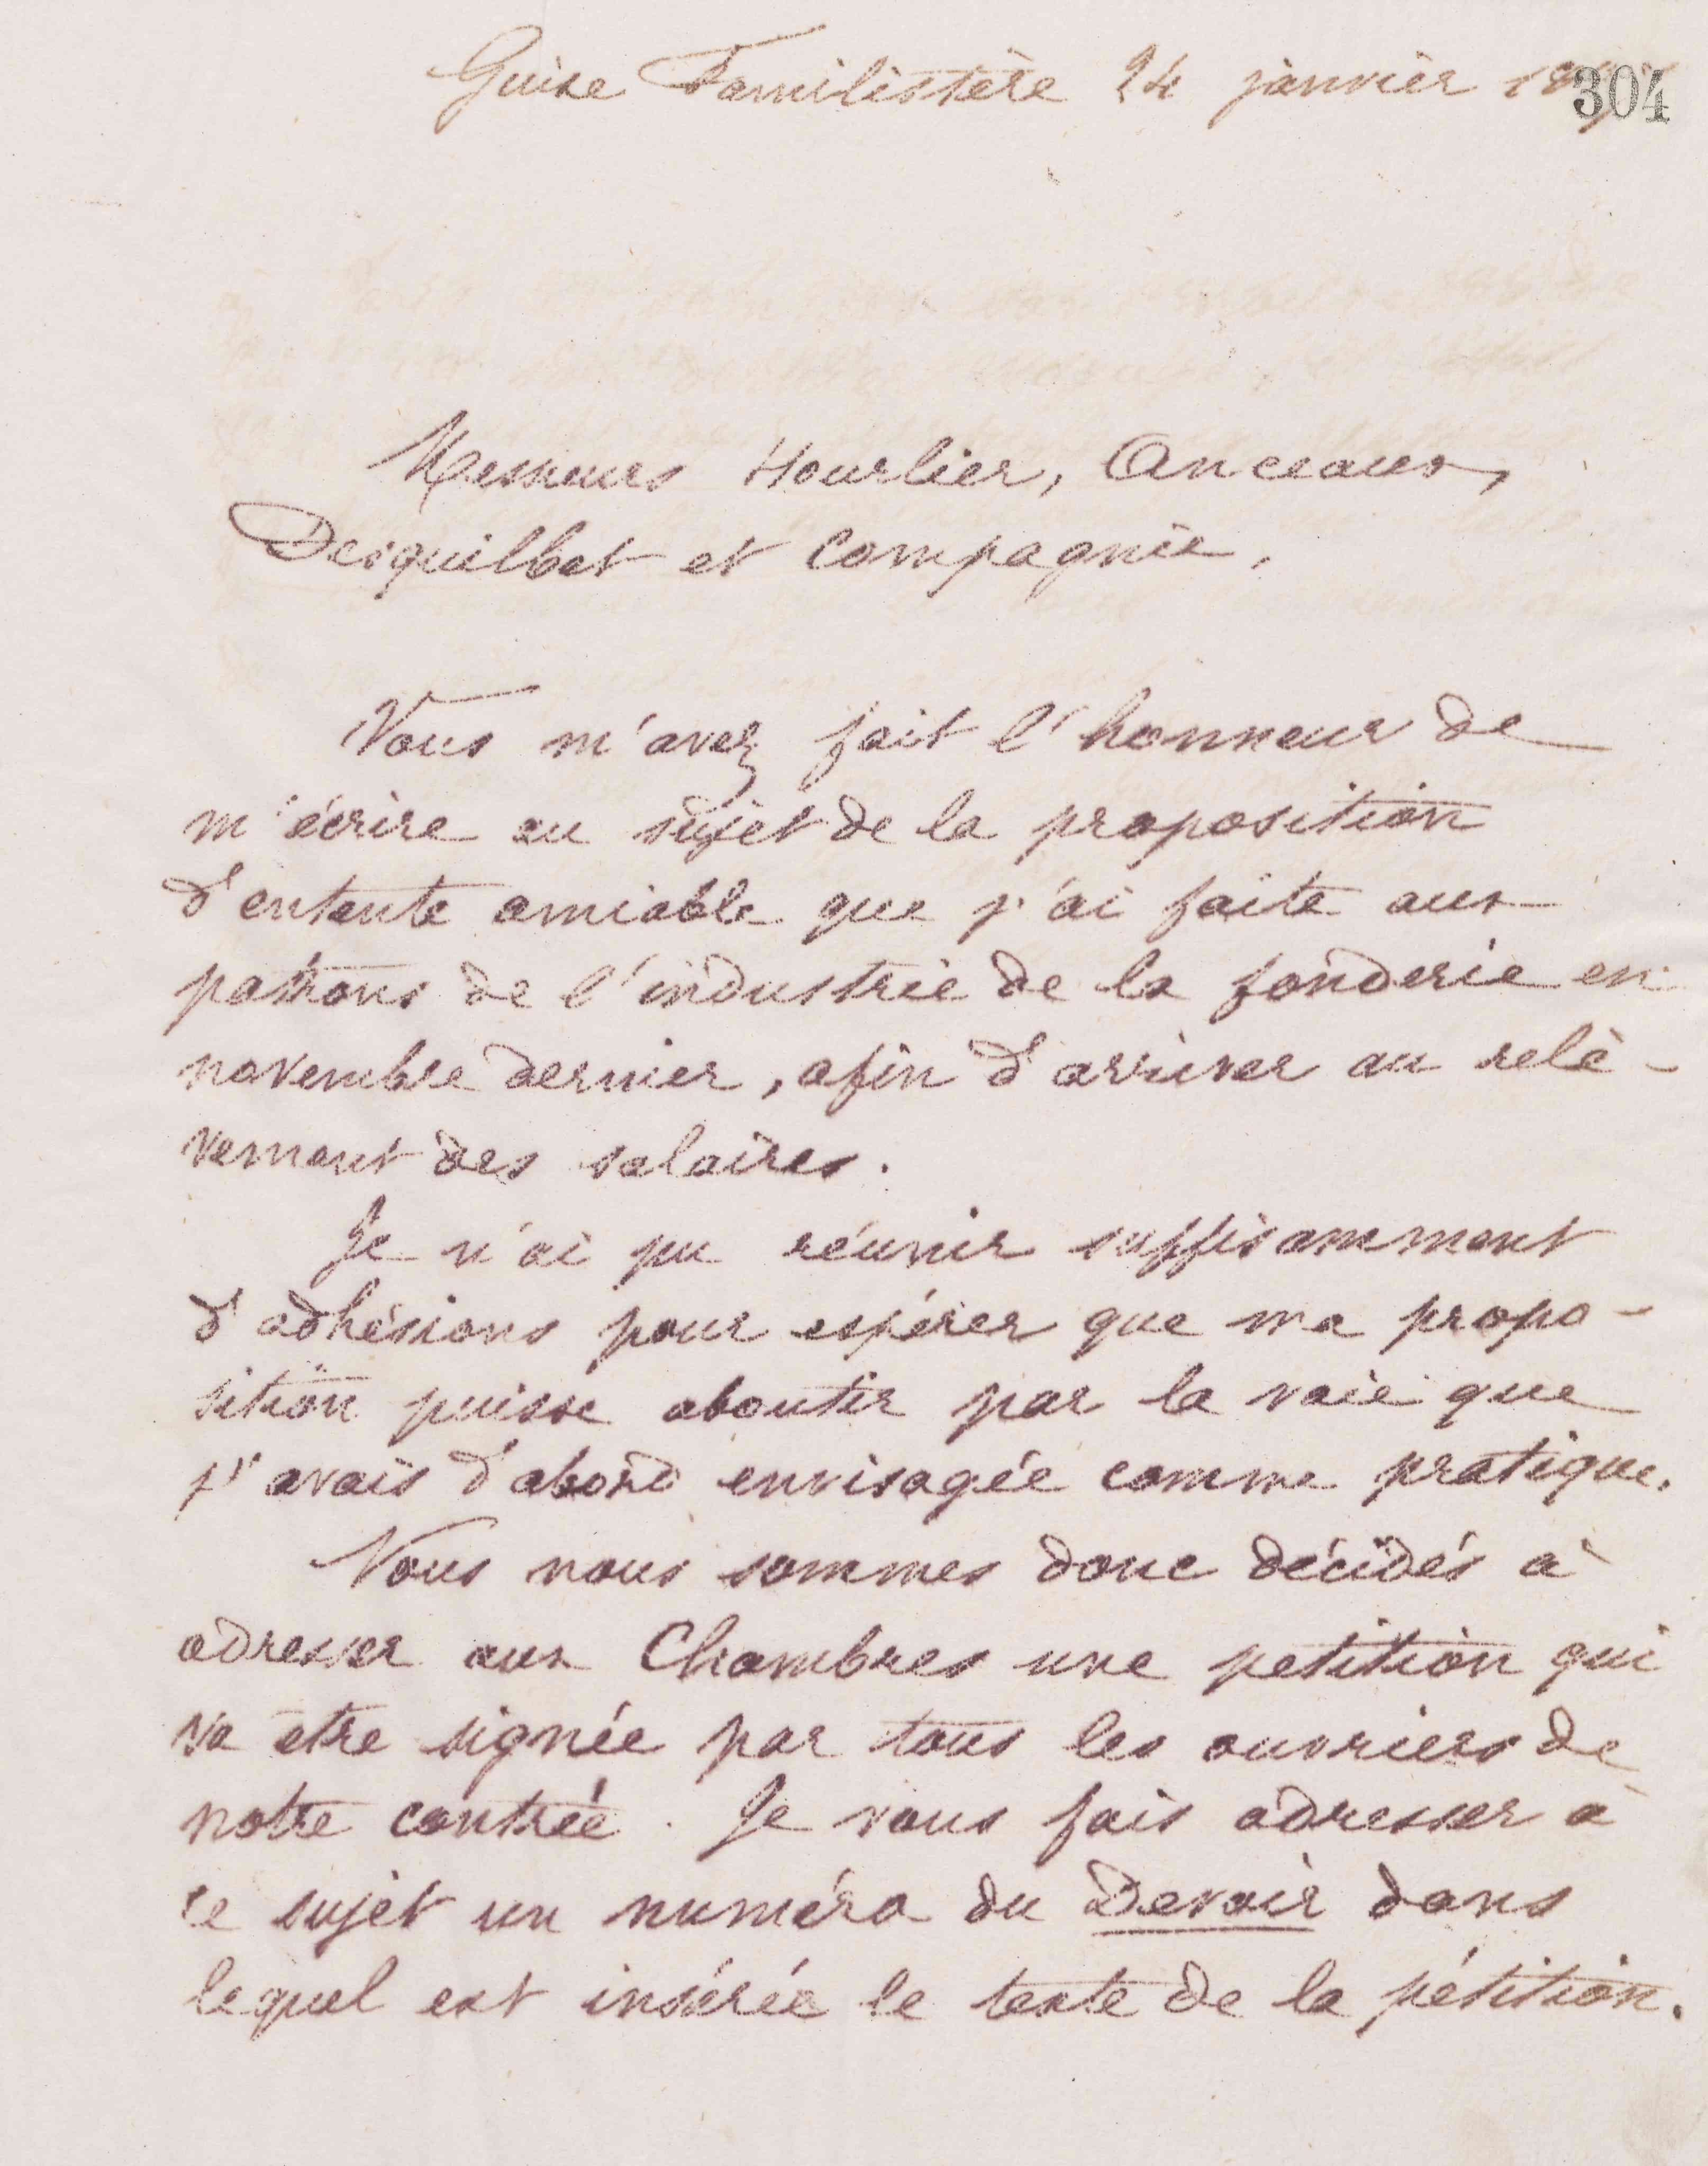 Guise Familistère 24 janvier
304
Messieurs Hourlier, Anceaux,
Desquilbet et Compagnie,
Vous m'avez fait l'honneur de
m'écrire au sujet de la proposition
d'entente amiable que j'ai faite aux
patrons de l'industrie de la fonderie en
novembre dernier, afin d'arriver au relè-
vement des salaires.
Je n'ai pu réunir suffisamment
d'adhésions pour espérer que ma propo-
sition puisse aboutir par la voie que
j'avais d'abord envisagée comme pratique.
Nous nous sommes donc décidés à
adresser aux Chambres une petition qui
va etre signée par tous les ouvriers de
notre contrée. Je vous fais adresser à
ce sujet un numéro du Devoir dans
lequel est insérée le texte de la pétition.